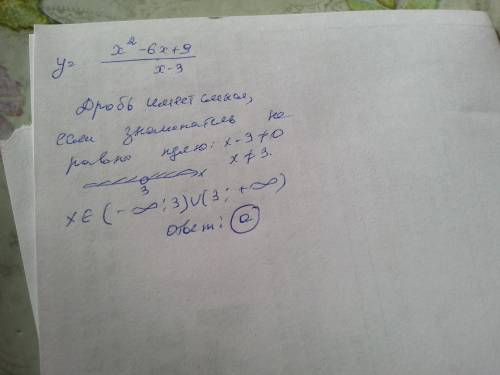 y= x²-6x+9 / x-3
Дробь имеет смысл,
если знаменатель не
равно нулю: x-3≠0
x≠3.
3 x
x∈(-∞;3)∪(3;+∞)
Ответ: а